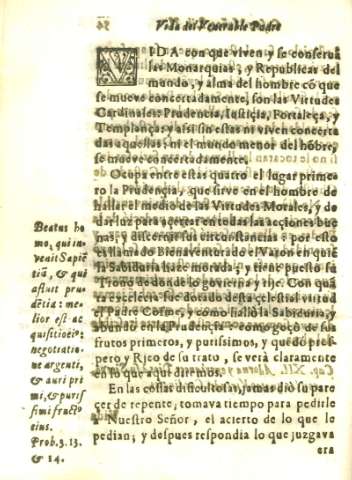 54
Vida del Venerable Padre
VIDA con que viven y se conserva
las Monarquias, y Republicas del
mundo, y alma del hombre cō que
se mueve concertadamente, son las Virtudes
Cardinales: Prudencia, Iusticia, Fortaleça, y
Templança: y assi sin estas ni viven concerta
das aquellas; ni el mundo menor del hōbre,
se mueve concertadamente.
Ocupa entre estas quatro el lugar prime
ro la Prudencia, que sirve en el hombre de
hallar el medio de las Virtudes Morales, y de
dar luz para acertar en todas las acciones bue
nas, y discernir sus circunstancias: por esto
es llamado Bienaventurado el Varon en quiē
la Sabiduria haze morada; y tiene puesto su
Trono de donde lo govierna y rige. Con quā
ta excelēcia fue dotado desta celestial virtud
el Padre Cosme, y como hallò la Sabiduria, y
abundò en la Prudencia: como goçò de sus
frutos primeros, y purissimos, y quedò pros-
pero y Rico de su trato, se verà claramente
en lo que aqui diremos.
En las cossas dificultosas, jamas diò su pare
çer de repente, tomava tiempo para pedirle
a Nuestro Señor, el acierto de lo que le
pedian; y despues respondia lo que juzgava
era
Beatus ho
mo, qui in
venit Sapiē
tiā, & qui
affluit pru-
dētia: me-
lior est ac
quisitio eius
negotiatio-
ne argenti,
& auri pri
mi, & puris
simi fructꝰ
eius.
Prob. 3. 13.
& 14.